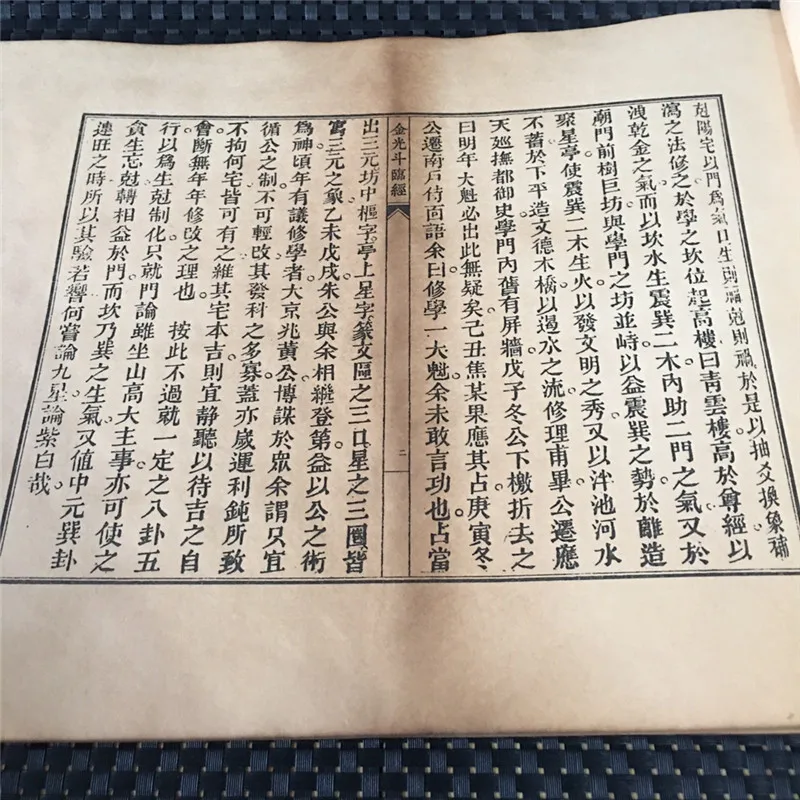 尅陽宅以門爲氣口生則福尅則禍於是以抽爻換象補
瀉之法修之於學之坎位起高樓曰青雲樓高於尊經以
洩乾金之氣而以坎水生震巽二木內助二門之氣又於
廟門前樹巨坊與學門之坊並峙以益震巽之勢於離造
聚星亭使震巽二木生火以發文明之秀又以泮池河水
不蓄於下平造文德木橋以遏水之流修理甫畢公遷應
天廵撫都御史學門內舊有屏牆戊子冬公下檄折去之
曰明年大魁必出此無疑矣己丑焦某果應其占庚寅冬
公遷南戶侍面語余曰修學一大魁余未敢言功也占當
金光斗臨經
二
出三元坊中樞字亭上星字篆文區之三口星之三圈皆
寓三元之象乙未戊戌朱公與余相繼登第益以公之術
爲神頃年有議修學者大京兆黃公博謀於眾余謂只宜
循公之制不可輕改其發科之多寡蓋亦歲運利鈍所致
不拘何宅皆可有之維其宅本吉則宜靜聽以待吉之自
會斷無年年修改之理也　按此不過就一定之八卦五
行以爲生尅制化只就門論雖坐山高大主事亦可使之
貪生忘尅轉相益於門而坎乃巽之生氣又値中元巽卦
連旺之時所以其驗若響何嘗論九星論紫白哉